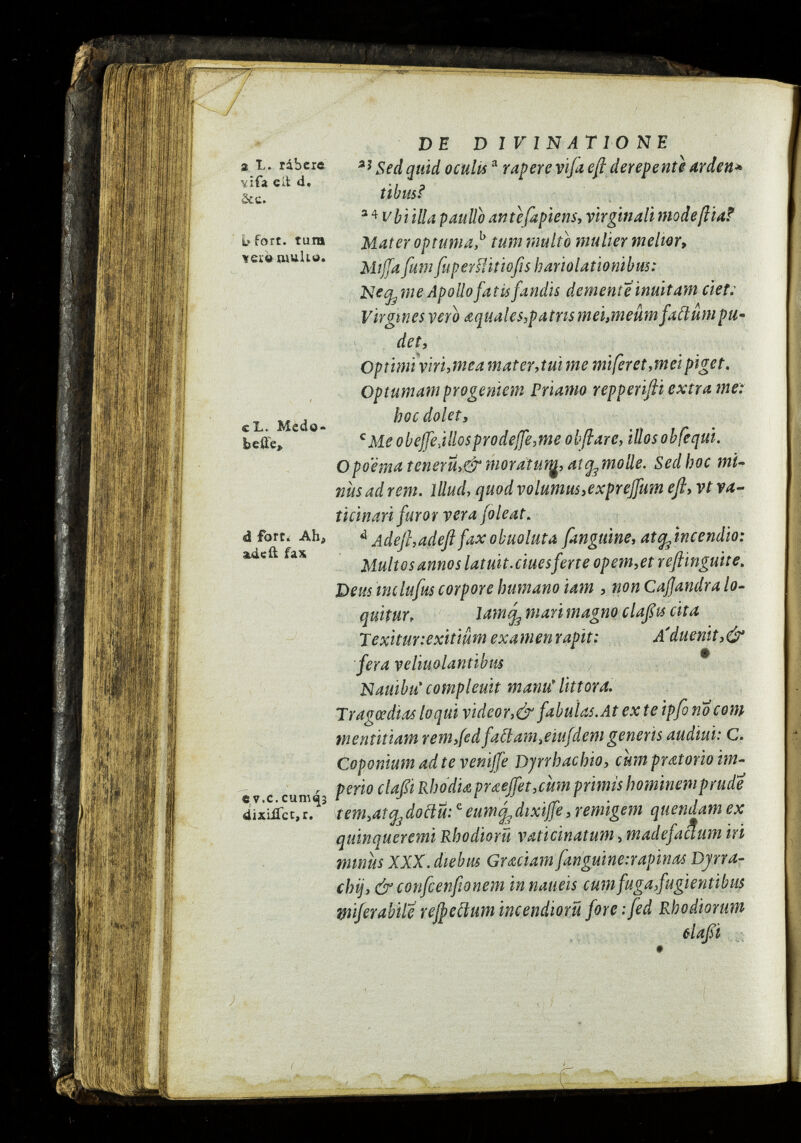 DE DIVINATIONE
a L. rábere
visa est d.
&c.
b fort. tum
vero multo.
c L. Medo-
besse,
d fort. Ah,
adest fax
e v.c. cumq́;
dixisset, r.
²³ Sed quid oculis ᵃ rapere visa est derepentè arden-
tibus?
²⁴ Vbi illa paullò antè sapiens, virginali modestia?
Mater optuma,ᵇ tum multò mulier melior,
Missa sum superstitiosis hariolationibus:
Neq; me Apollo fatis fandis dementẽ inuitam ciet:
Virgines verò æquales, patris mei, meûm factûm pu-
det,
Optimi viri, mea mater, tui me miseret, mei piget.
Optumam progeniem Priamo repperisti extra me:
hoc dolet,
ᶜ Me obesse, illos prodesse, me obstare, illos obsequi.
O poëma tenerũ, & moratum, atq; molle. Sed hoc mi-
nùs ad rem. Illud, quod volumus, expressum est, vt va-
ticinari furor vera soleat.
ᵈ Adest, adest fax obuoluta sanguine, atq; incendio:
Multos annos latuit. ciues ferte opem, et restinguite.
Deus inclusus corpore humano iam, non Cassandra lo-
quitur, Iamq́; mari magno classis cita
Texitur: exitiûm examen rapit: Aduenit, &
fera veliuolantibus
Nauibu' compleuit manu' littora.
Tragœdias loqui videor, & fabulas. At ex te ipso nõ com
mentitiam rem, sed factam, eiusdem generis audiui: C.
Coponium ad te venisse Dyrrhachio, cùm prætorio im-
perio classi Rhodiæ præesset, cùm primis hominem prudẽ
tem, atq; doctũ: ᵉ eumq́; dixisse, remigem quendam ex
quinqueremi Rhodiorũ vaticinatum, madefactum iri
minùs XXX. diebus Græciam sanguine: rapinas Dyrra-
chij, & conscensionem in naueis cum fuga, fugientibus
miserabilẽ respectum incendiorũ fore: sed Rhodiorum
classi